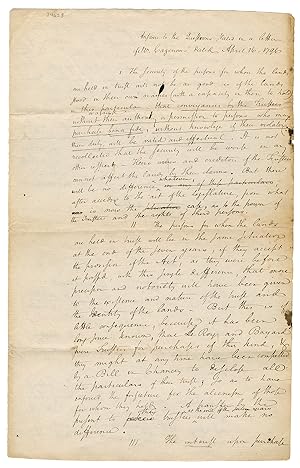 Answer to the Questions stated in a letter
of Mr Cazenove dated, April 14. 1796
I The security of the persons for whom the lands
are held in trust will not be as good as if the lands
stood in their own names with a capacity in them to hold
in this particular that conveyances by the Trustees
without their authority & permission to persons who may
purchase bona fide, without knowledge of their violating
their duty, will be valid and effectual. It is not
recollected that the security will be worse in any
other respect.
affect the lands in their hands. But there
will be no difference,
after acceding to the act of the legislature, from what
is now the case, as to the power of
the Trustees and the rights of third persons.
II The persons for whom the lands
are held in trust will be in the same situation
at the end of the seven years, if they accept
the provision of the Act, as they were before
it passed with this single difference, that more
precision and notoriety will have been given
to the existence and nature of the trust and
the identity of the lands. But this is of
little consequence, because it has been
long since known that Le Roy and Bayard
were Trustees for purchases of this kind, &
they might at any time have been compelled
by a Bill in Chancery to disclose all
the particulars of their trust, so as to have
exposed the future for the alienism of those
for whom they
present
difference.
III The interest upon purchase